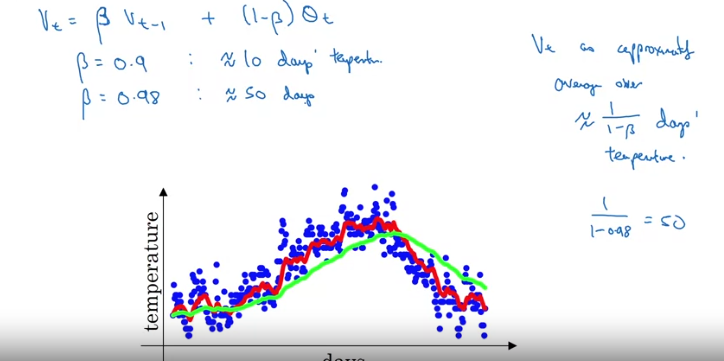 V_t = β V_{t-1} + (1-β) θ_t
β = 0.9 : ≈ 10 days'
β = 0.98 : ≈ 50 days
V_t as approximately
average over
≈ 1/(1-β) days'
temperature.
1/(1-0.98) = 50
temperature
days